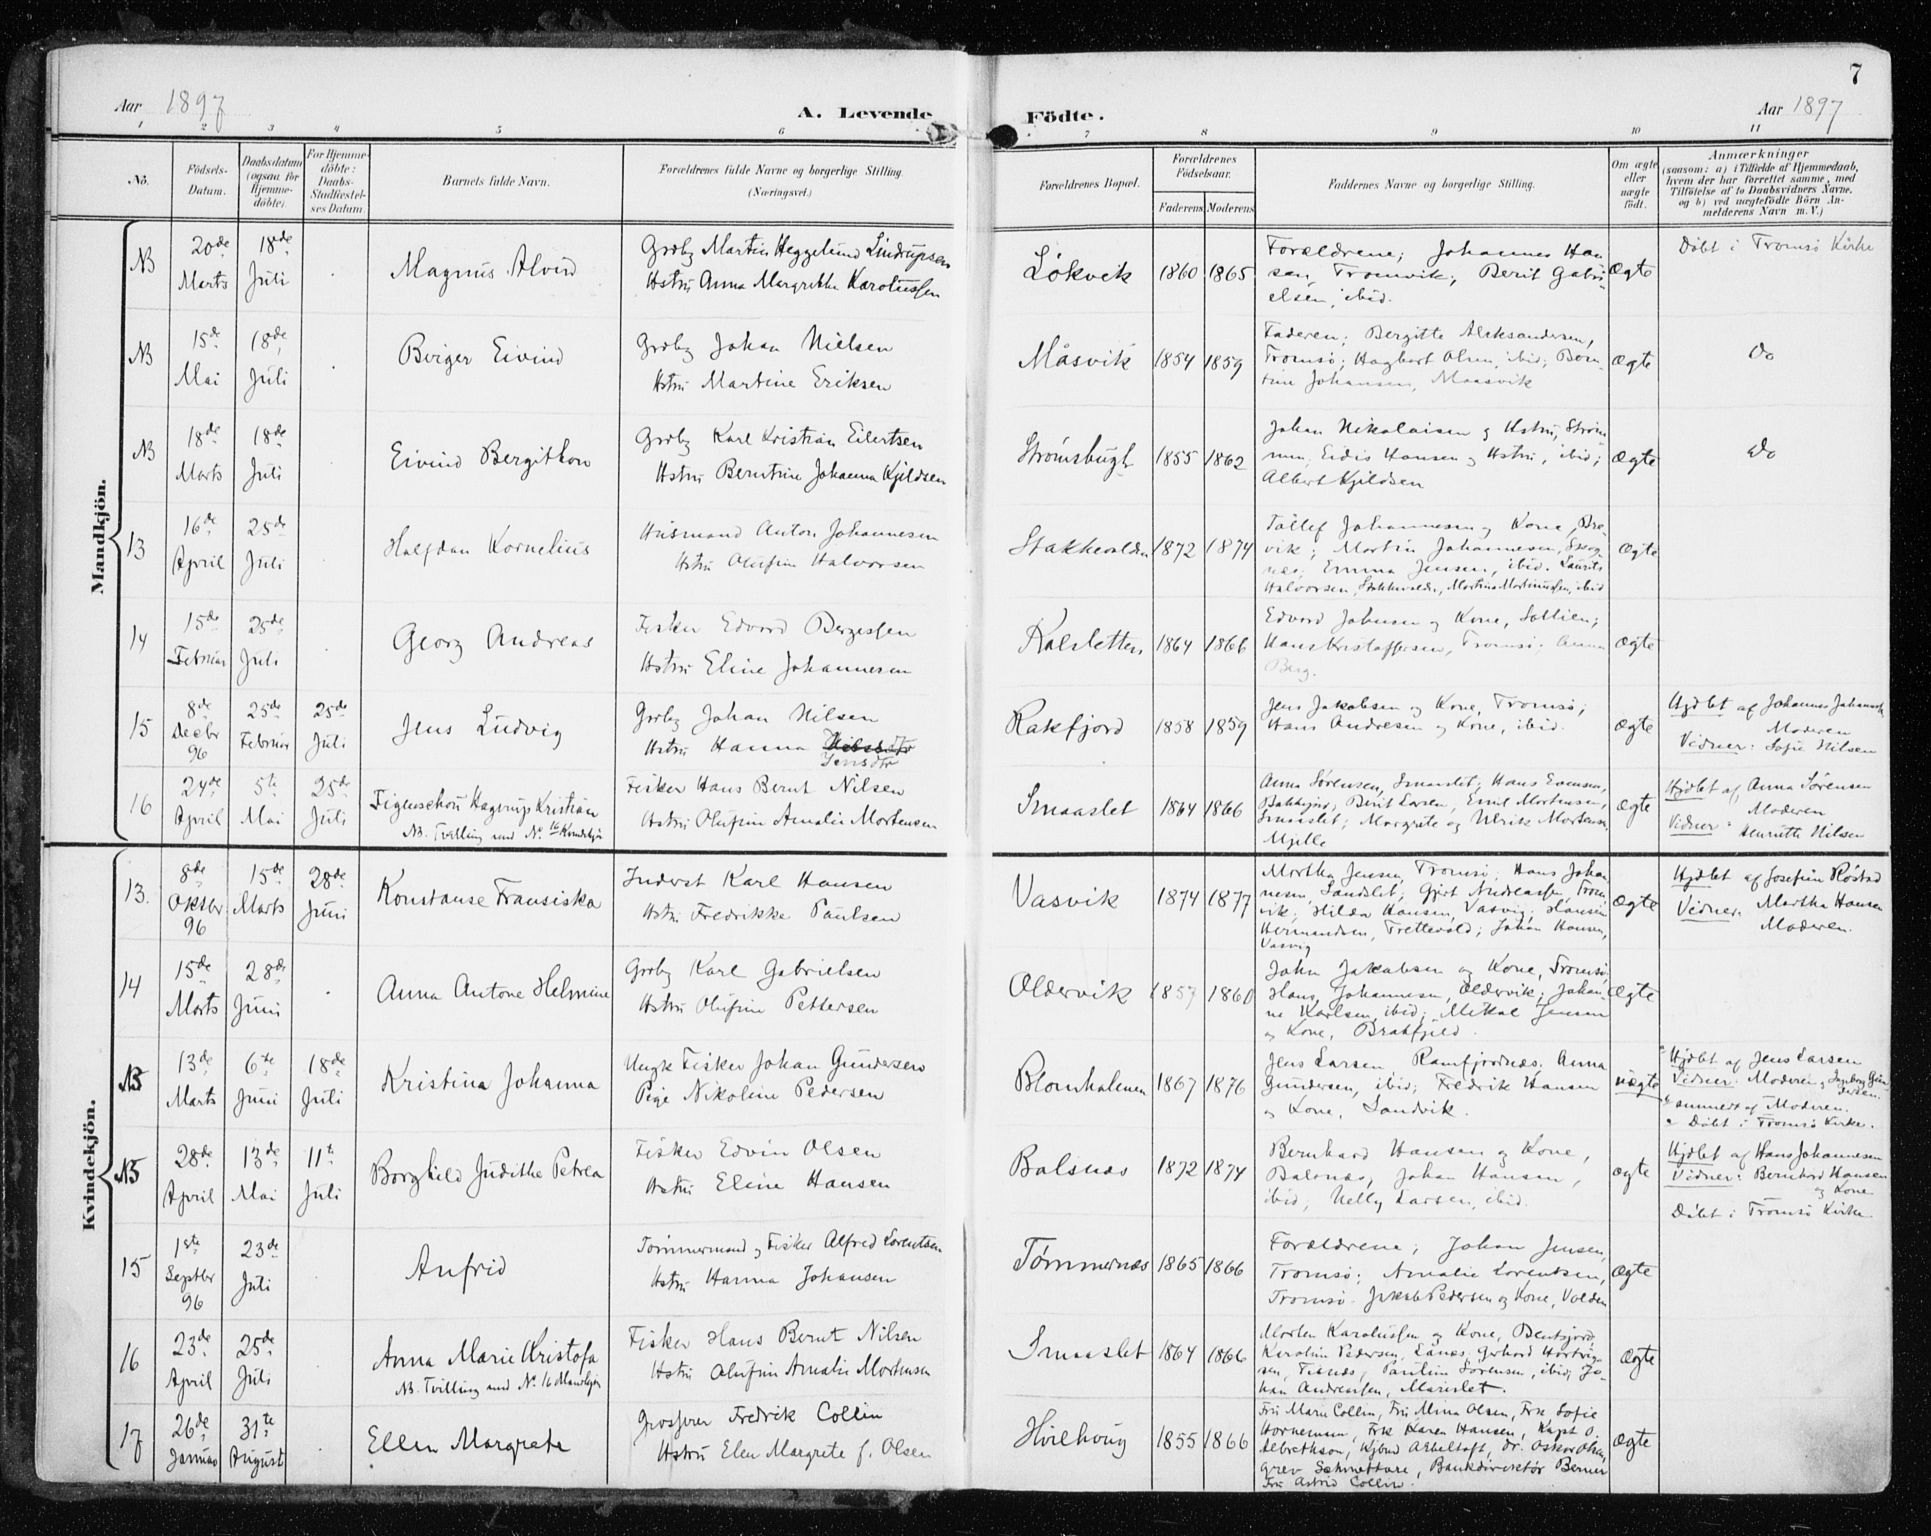 7
Aar 1897
A. Levende
Födte.
Aar 1897
1 2 3 4 5 6 7 8 9 10 11
No.
Födsels-Datum.
Daabsdatum (ogsaa for Hjemme-döbte).
For Hjemme-döbte: Daabs-Stadfæstel-ses Datum
Barnets fulde Navn.
Forældrenes fulde Navne og borgerlige Stilling.
(Næringsvei.)
Forældrenes Bopæl.
Forældrenes Födselsaar.
Faderens Moderens
Faddernes Navne og borgerlige Stilling.
Om ægte eller uægte födt.
Anmærkninger
(saasom: a) i Tilfælde af Hjemmedaab, hvem der har forrettet samme, med Tilföielse af to Daabsvidners Navne, og b) ved uægtefödte Börn An-melderens Navn m. V.)
Mandkjön.
NB 20de Marts 18de Juli Magnus Alvin
Grdbr Martin Heggelund Lindrupsen
Hstru Anna Margrethe Karolussen
Løkvik 1860 1865
Forældrene; Johannes Han-
sen, Tromvik; Berit Gabri-
elsen, ibid.
ægte
Döbt i Tromsö Kirke
NB 15de Mai 18de Juli Birger Eivind
Grdbr Johan Nielsen
Hstru Martine Eriksen
Måsvik 1854 1859
Faderen; Bergitte Aleksandersen,
Tromsö; Hagbart Olsen, ibid; Bern-
tine Johansen, Maasvik
ægte
Do
NB 18de Marts 18de Juli Eivind Bergithon
Grdbr Karl Kristian Eilertsen
Hstru Berntine Johanna Kjeldsen
Strömsbugt 1855 1862
Johan Nikolaisen og Hstru, Ström-
men; Eidis Hansen og Hstru, ibid;
Albert Kjeldsen
ægte
Do
13 16de April 25de Juli Halfdan Kornelius
Husmand Anton Johannesen
Hstru Olufine Halvorsen
Stakkevolden 1872 1874
Tollef Johannesen og Kone, Bre-
vik; Martin Johannesen, Skog-
næs; Emma Jensen, ibid. Laurits
Halvorsen, Stakkevolden, Martine Martinussen, ibid
ægte
14 15de Februar 25de Juli Georg Andreas
Fisker Edvard Bergessen
Hstru Eline Johannesen
Kalsletten 1864 1866
Edvard Johnsen og Kone, Sollien;
Hans Kristoffersen, Tromsö; Anna
Berg.
ægte
15 8de Decbr 96 25de Februar 25de Juli Jens Ludvig
Grdbr Johan Nilsen
Hstru Hanna Nilsdtr
Jensdtr
Rakfjord 1858 1859
Jens Jakobsen og Kone, Tromsö;
Hans Andresen og Kone, ibid.
ægte
Hjdbt af Johannes Johannesen
Moderen
Vidner: Sofie Nilsen
16 24de April 5te Mai 25de Juli Figenschou Hagerup Kristian
NB. Tvilling med No. 16 Kvindekjøn
Fisker Hans Bernt Nilsen
Hstru Olufine Amalie Mortensen
Smaaslet 1864 1866
Anna Sörensen, Smaaslet; Hans Evensen,
Bakkejord; Berit Larsen, Emil Mortensen,
Smaaslet; Margrete og Ulrik Mortensen
Mjelle
ægte
Hjdbt af Anna Sörensen
Moderen
Vidner: Henritte Nilsen
Kvindekjön.
13. 8de Oktbr 96 15de Marts 28de Juni Konstanse Fransiska
Inderst Karl Hansen
Hstru Fredrikke Paulsen
Vasvik 1874 1877
Martha Jensen, Tromsö; Hans Johan-
nesen, Sandslet; Gjert Andreassen, Trom-
vik; Hilda Hansen, Vasvig; Hansine
Hermandsen, Trettevold; Johan Hansen,
Vasvig
ægte
Hjdbt af Josefine Röstad
Vidner: Martha Hansen
Moderen.
14 15de Marts 28de Juni Anna Antone Helmine
Grdbr Karl Gabrielsen
Hstru Olufine Pettersen
Oldervik 1857 1860
John Jakobsen og Kone, Tromsö;
Hans Johannesen, Oldervik; Johan-
ne Karlsen, ibid; Mikal Jensen
og Kone, Brakfjeld.
ægte
NB 13de Marts 6te Juni 18de Juli Kristina Johanna
Ungk Fisker Johan Gundersen
Pige Nikoline Pedersen
Blomhalmen 1867 1876
Jens Larsen Ramfjordnæs; Anna
Gundersen, ibid; Fredrik Hansen
og Kone, Sandvik.
uægte
Hjdbt af Jens Larsen
Vidner: Moderen og Ingeborg Gun-
dersen.
anmeldt af Moderen.
Döbt i Tromsö Kirke.
NB 28de April 13de Mai 11te Juli Borghild Judithe Petrea
Fisker Edvin Olsen
Hstru Eline Hansen
Balsnæs 1872 1874
Bernhard Hansen og Kone,
Balsnæs, Johan Hansen,
ibid, Nelly Larsen, ibid.
ægte
Hjdbt af Hans Johannesen
Vidner: Bernhard Hansen
og Kone
Döbt i Tromsö Kirke.
15 1ste Septbr 96 23de Juli Anfrid
Tömmermand og Fisker Alfred Lorentsen
Hstru Hanna Johansen
Tømmernæs 1865 1866
Forældrene; Johan Jensen,
Tromsö; Amalie Lorentsen,
Tromsö. Jakob Pedersen og Kone, Volden
ægte
16 23de April 25de Juli Anna Marie Kristofa
NB. Tvilling med No. 16 Mandkjøn
Fisker Hans Bernt Nilsen
Hstru Olufine Amalie Mortensen
Smaaslet 1864 1866
Morten Karolussen og Kone, Bentsjord
Karoline Pedersen, Lanes, Gerhard Hartvig-
sen, Tisnæs, Pauline Sörensen, ibid; Jo-
han Andreassen, Mareslet.
ægte
17 26de Januar 31te August Ellen Margrete
Grosserer Fredrik Collin
Hstru Elen Margrete f. Olsen
Hvilhoug 1855 1866
Fru Marie Collin, Fru Mina Olsen, Frk Sofie
Hornemann, Frk Karen Hansen, Kapt O.
Albrethson, Kjbmd Aebeltoft, Dr. Oskar Olsen,
Grev Schmettau, Bankdirektør Berner
Fru Astrid Collin.
ægte